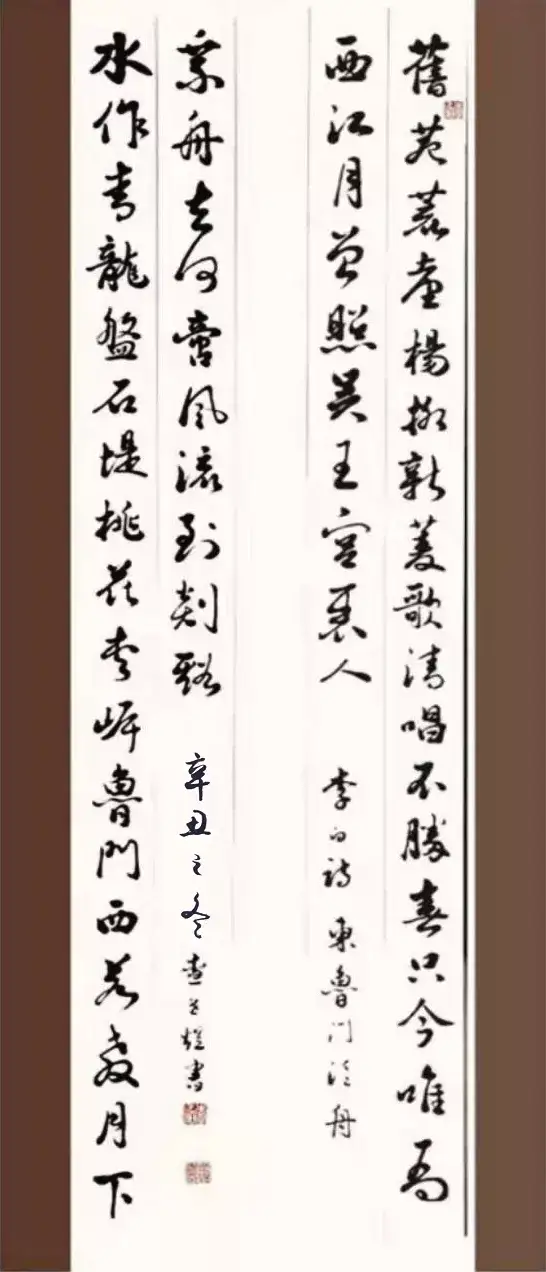 舊苑荒臺楊柳新菱歌清唱不勝春只今唯有
西江月曾照吳王宮裏人
李白詩 東魯門泛舟
水作青龍盤石堤桃花夾岸魯門西若教月下
乘舟去何啻風流到剡谿
辛丑之冬 書